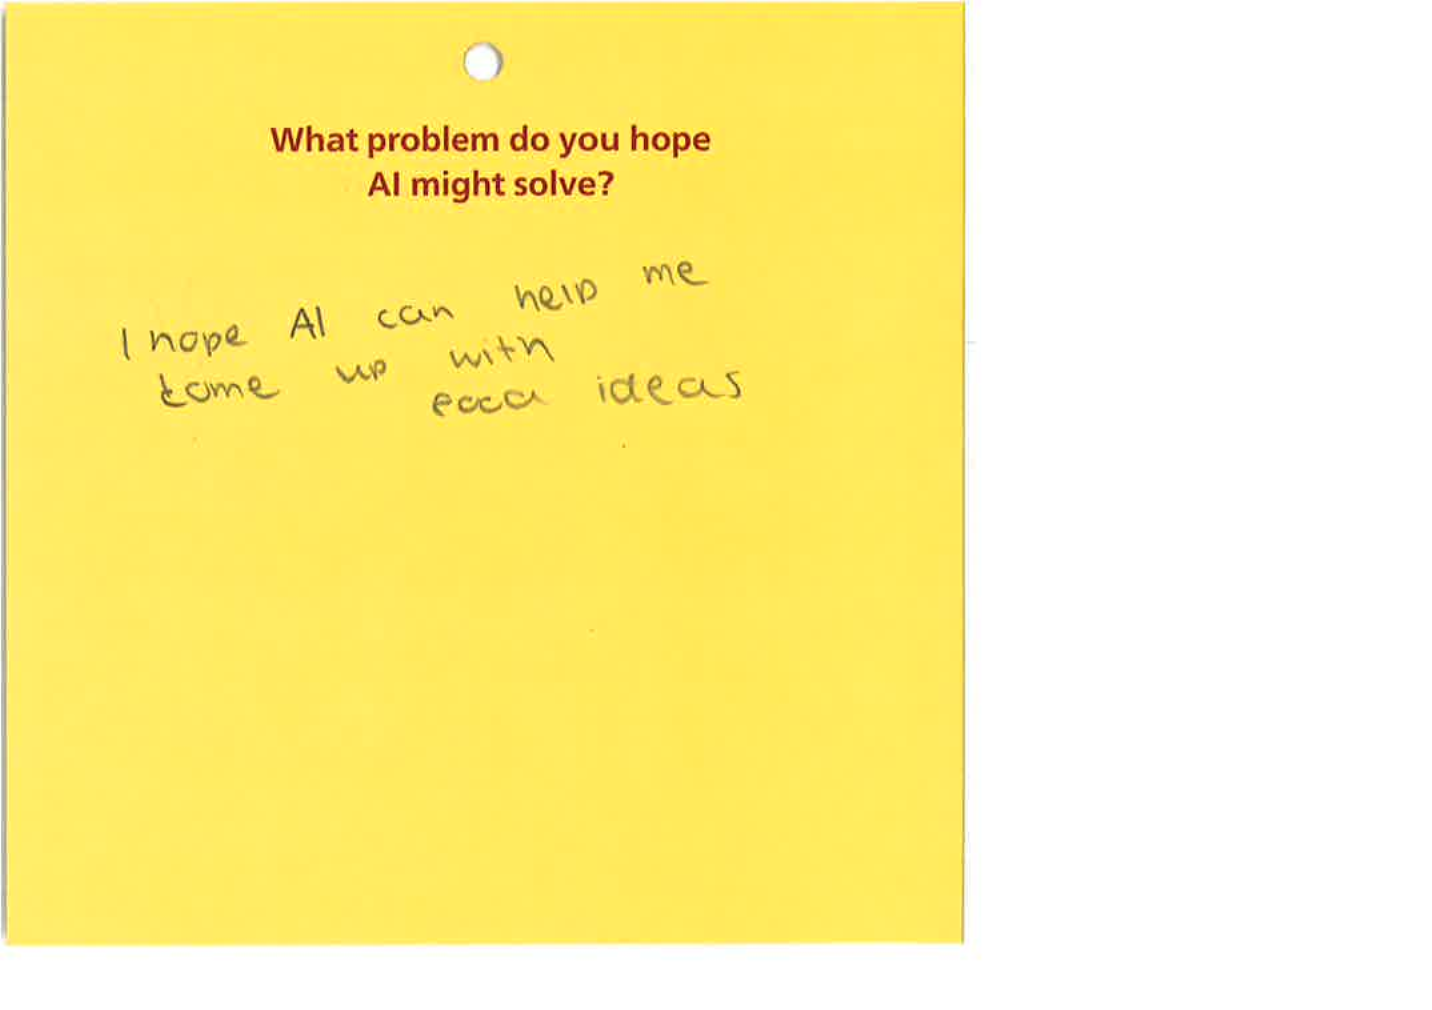 What problem do you hope
AI might solve?
I hope AI can help me
come up with
ideas